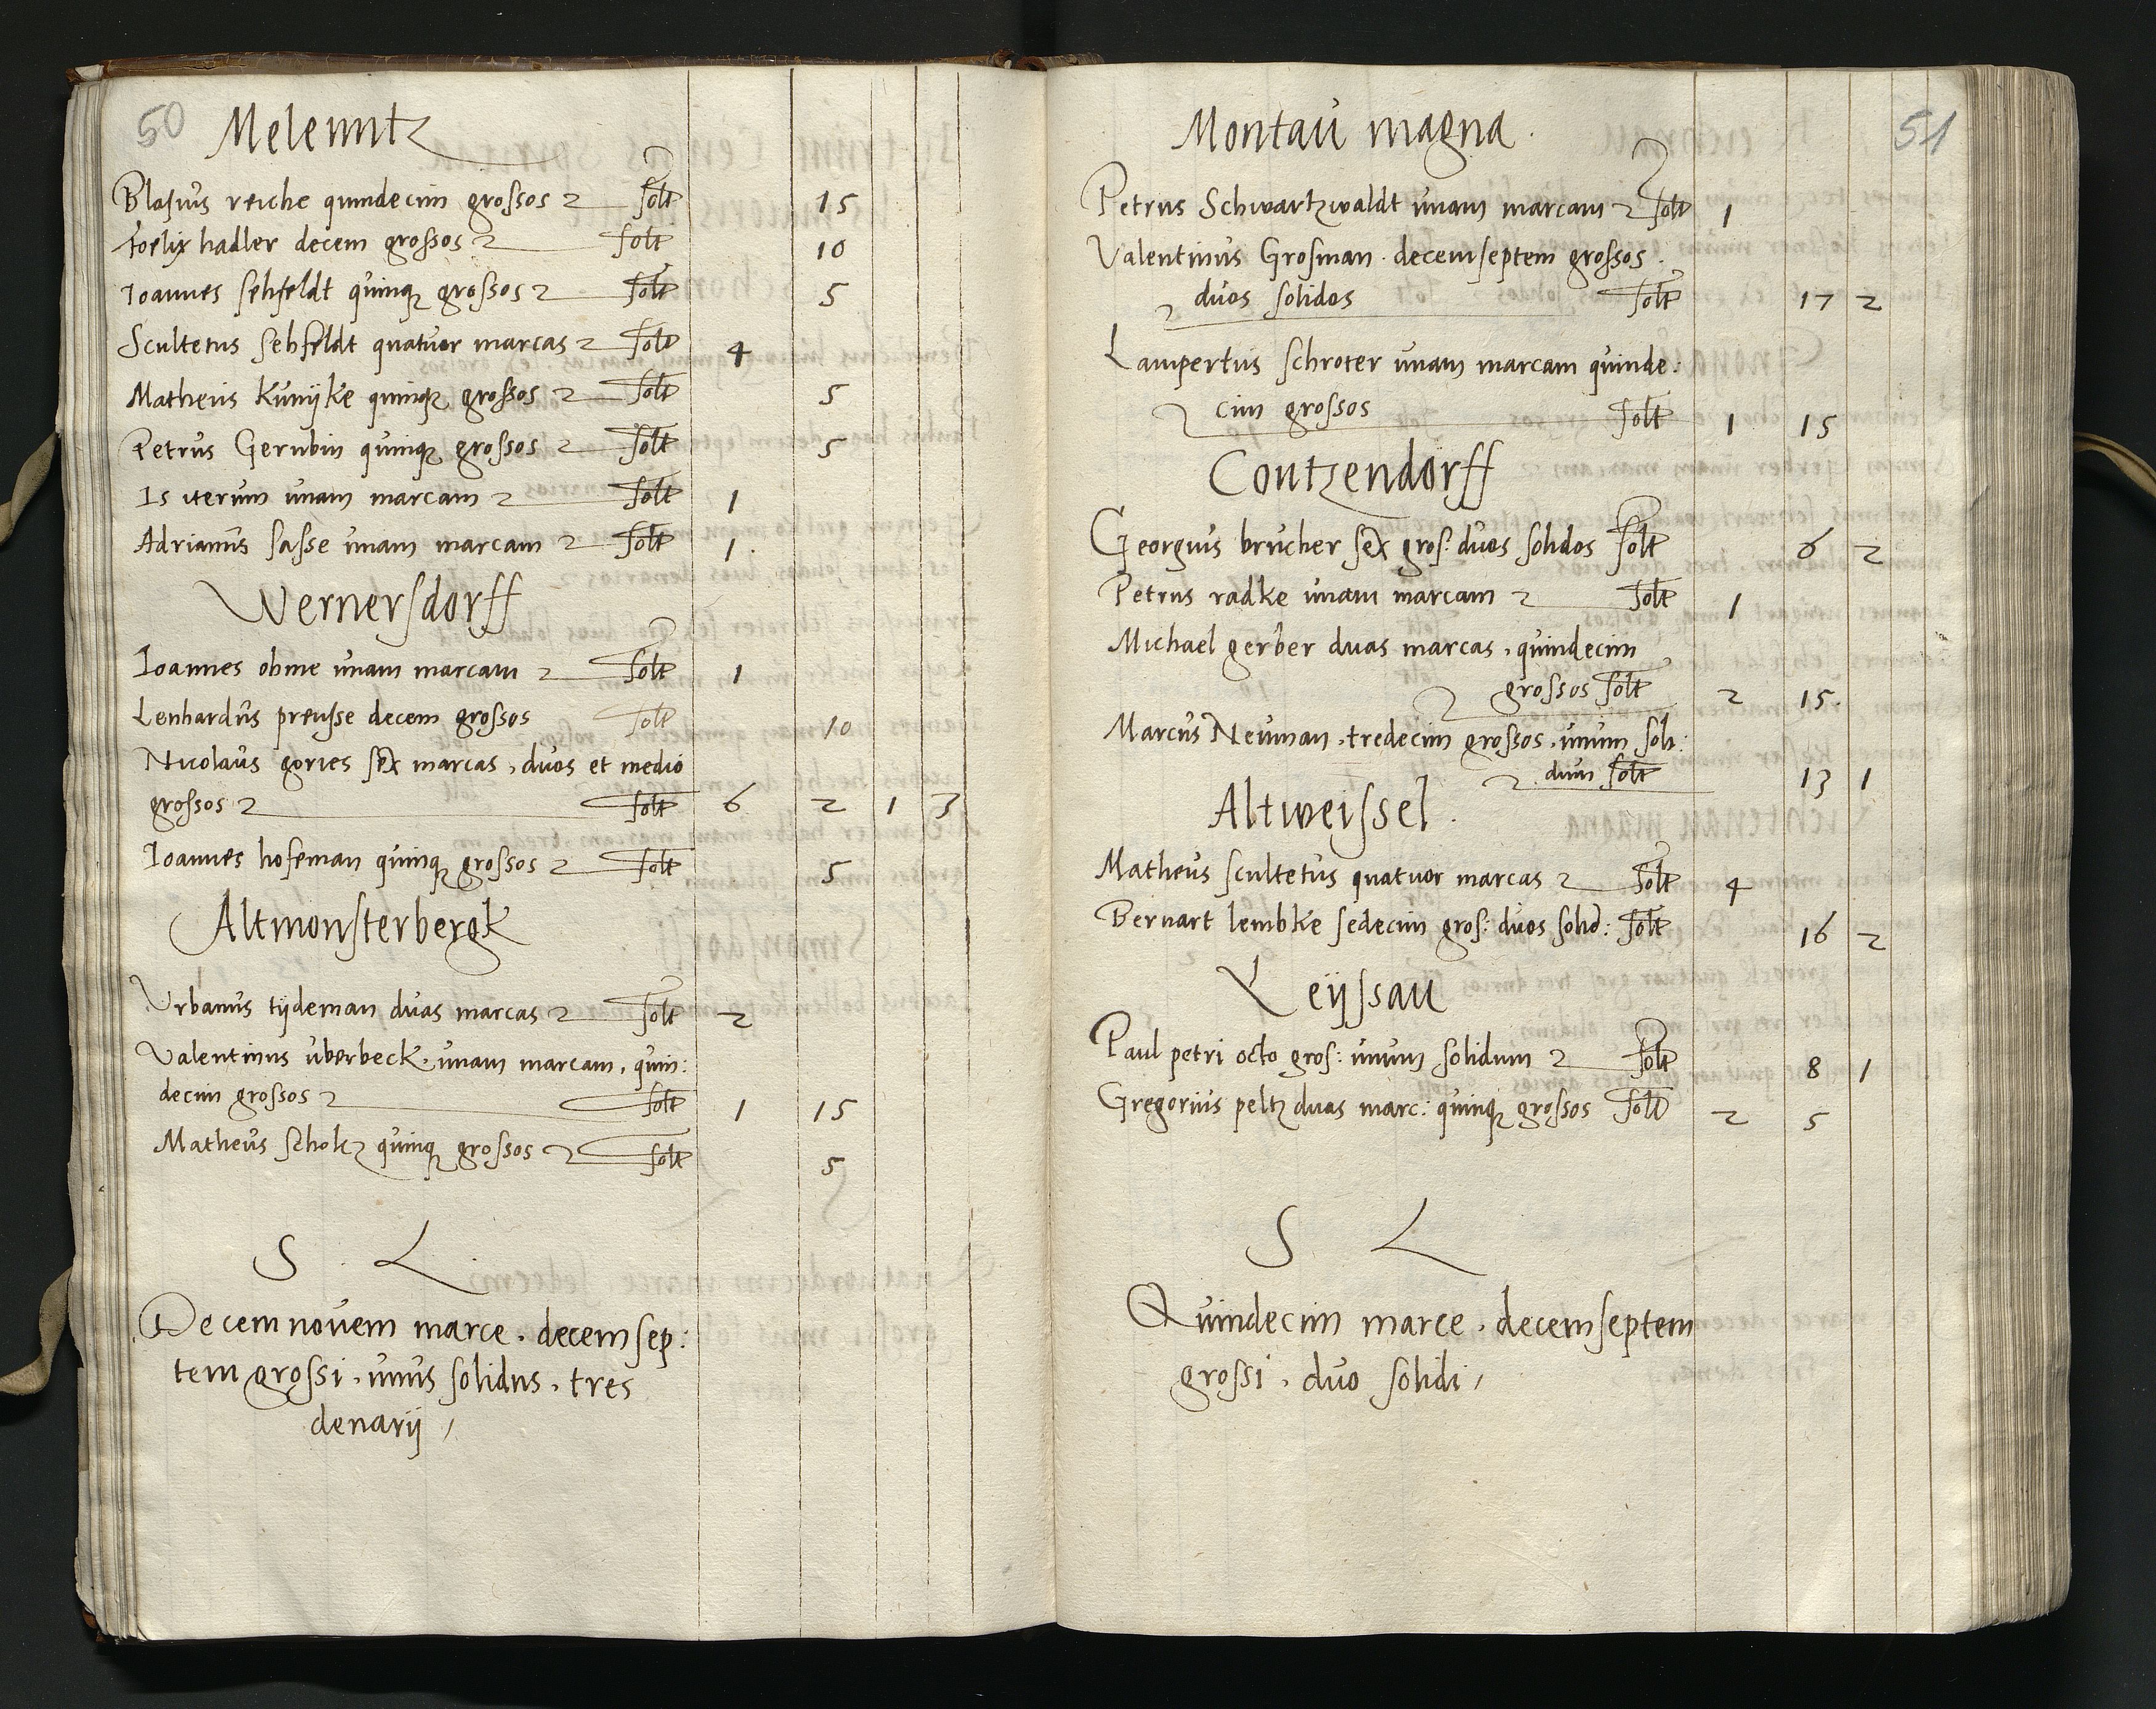 50
Melenntz
Blasius reiche quindecim grossos solt 15
Foelix hadler decem grossos solt 10
Ioannes sehfeldt quinqȝ grossos solt 5
Scultetus sehfeldt quatuor marcas solt 4
Matheus Kunijke quinqȝ grossos solt 5
Petrus Gerubin quinqȝ grossos solt 5
Is iterum unam marcam solt 1
Adrianus sasse unam marcam solt 1
Wernersdorff
Ioannes ohme unam marcam solt 1
Lenhardus preusse decem grossos solt 10
Nicolaus gories sex marcas, duos et medio
grossos solt 6 2 1 3
Ioannes hofeman quinqȝ grossos solt 5
Altmonsterbergk
Urbanus tijdeman duas marcas solt 2
Valentinus uberbeck, unam marcam, quin:
decim grossos solt 1 15
Matheus scholtz quinqȝ grossos solt 5
S L
Decemnovem marce, decemsep:
tem grossi, unus solidus, tres
denarij
51
Montau magna
Petrus Schwartzwaldt unam marcam solt 1
Valentinus Grosman decemseptem grossos
duos solidos solt 17 2
Lampertus schroter unam marcam quinde:
cim grossos solt 1 15
Contzendorff
Georgius brucher sex gros: duos solidos solt 6 2
Petrus radke unam marcam solt 1
Michael gerber duas marcas, quindecim
grossos solt 2 15
Marcus Neuman, tredecim grossos, unum soli:
dum solt 13 1
Altweissel
Matheus scultetus quatuor marcas solt 4
Bernart lembke sedecim gros: duos solid: solt 16 2
Leijssau
Paul petri octo gros: unum solidum solt 8 1
Gregorius peltz duas marc: quinqȝ grossos solt 2 5
S L
Quindecim marce, decemseptem
grossi, duo solidi